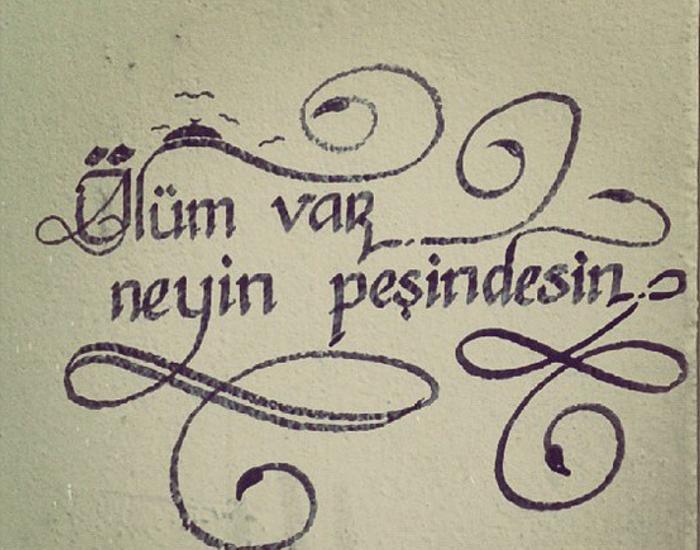 Ölüm var
neyin peşindesin